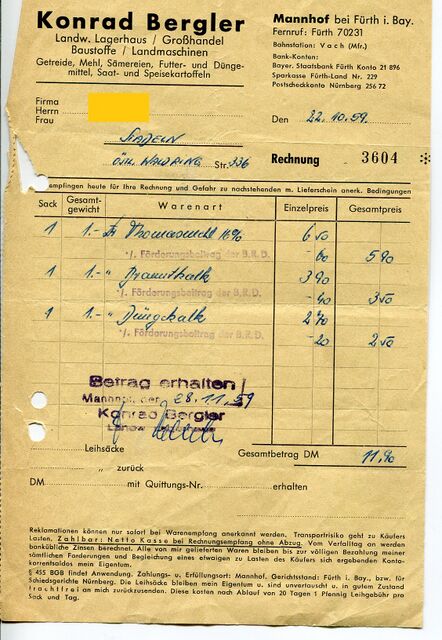 Konrad Bergler
Landw. Lagerhaus / Großhandel
Baustoffe / Landmaschinen
Getreide, Mehl, Sämereien, Futter- und Dünge-
mittel, Saat- und Speisekartoffeln
Mannhof bei Fürth i. Bay.
Fernruf: Fürth 70231
Bahnstation: Vach (Mfr.)
Bank-Konten:
Bayer. Staatsbank Fürth Konto 21 896
Sparkasse Fürth-Land Nr. 229
Postscheckkonto Nürnberg 256 72
Firma
Herrn
Frau
Den 22.10.59.
Stadeln
Str. 336
Rechnung 3604 *
empfingen heute für Ihre Rechnung und Gefahr zu nachstehenden m. Lieferschein anerk. Bedingungen
Sack Gesamt-gewicht Warenart Einzelpreis Gesamtpreis
1 1.- Thomasmehl 16% 6 50
./. Förderungsbeitrag der B.R.D. -60 5 90
1 1.- " Branntkalk 3 90
./. Förderungsbeitrag der B.R.D. -40 3 50
1 1.- " Düngekalk 2 70
./. Förderungsbeitrag der B.R.D. -20 2 50
Betrag erhalten!
Mannhof, der 28.11.59
Konrad Bergler
Leihsäcke
Gesamtbetrag DM 11.90
" zurück
DM mit Quittungs-Nr. erhalten
Reklamationen können nur sofort bei Warenempfang anerkannt werden. Transportrisiko geht zu Käufers
Lasten. Zahlbar: Netto Kasse bei Rechnungsempfang ohne Abzug. Vom Verfalltag an werden
bankübliche Zinsen berechnet. Alle von mir gelieferten Waren bleiben bis zur völligen Bezahlung meiner
sämtlichen Forderungen und Begleichung eines etwaigen zu Lasten des Käufers sich ergebenden Konto-
korrentsaldos mein Eigentum.
§ 455 BGB findet Anwendung. Zahlungs- u. Erfüllungsort: Mannhof. Gerichtsstand: Fürth i. Bay., bzw. für
Schiedsgerichte Nürnberg. Die Leihsäcke bleiben mein Eigentum u. sind unvertauscht u. in gutem Zustand
frachtfrei an mich zurückzusenden. Diese kosten nach Ablauf von 20 Tagen 1 Pfennig Leihgebühr pro
Sack und Tag.